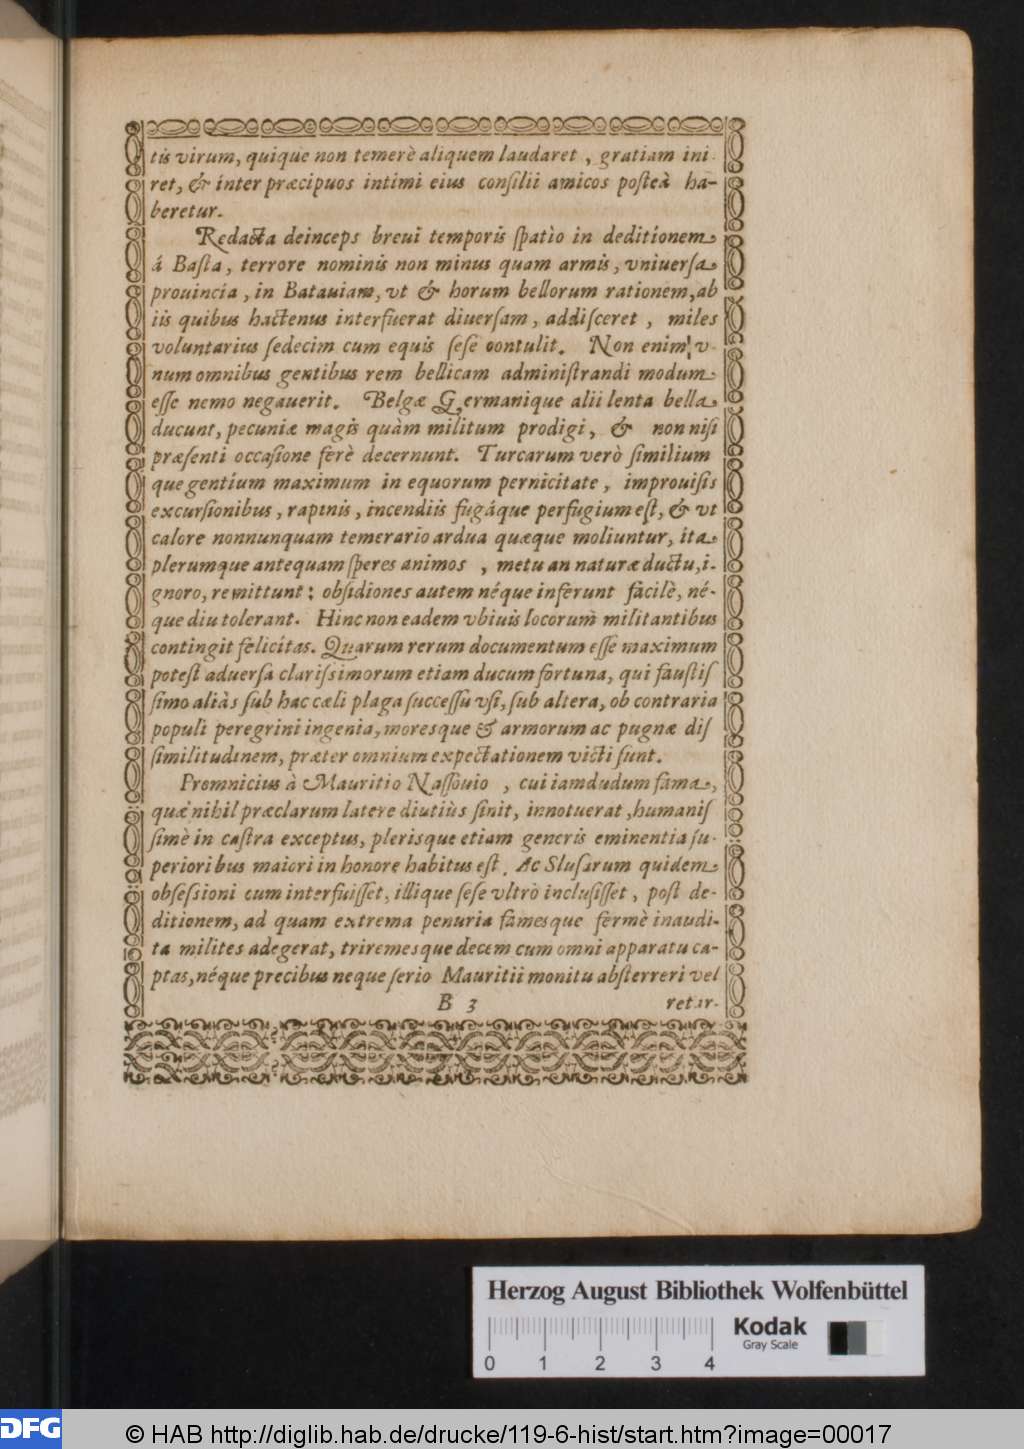 tis virum, quique non temerè aliquem laudaret, gratiam ini
ret, & inter præcipuos intimi eius conſilii amicos poſteà ha-
beretur.
Redacta deinceps breui temporis ſpatio in deditionem
á Baſta, terrore nominis non minus quam armis, vniuerſa
prouincia, in Batauiam, vt & horum bellorum rationem, ab
iis quibus hactenus interfuerat diuerſam, addiſceret, miles
voluntarius ſedecim cum equis ſeſe contulit. Non enim v-
num omnibus gentibus rem bellicam adminiſtrandi modum
eſſe nemo negauerit. Belgæ Germanique alii lenta bella
ducunt, pecuniæ magis quàm militum prodigi, & non niſi
præſenti occaſione ferè decernunt. Turcarum verò ſimilium
que gentium maximum in equorum pernicitate, improuiſis
excurſionibus, rapinis, incendiis fugáque perfugium eſt, & vt
calore nonnunquam temerario ardua quæque moliuntur, ita
plerumque antequam ſperes animos, metu an naturæ ductu, i-
gnoro, remittunt: obſidiones autem néque inferunt facilè, né-
que diu tolerant. Hinc non eadem vbiuis locorum militantibus
contingit felicitas. Quarum rerum documentum eſſe maximum
poteſt aduerſa clariſsimorum etiam ducum fortuna, qui fauſtiſ
ſimo aliàs ſub hac cæli plaga ſucceſſu vſi, ſub altera, ob contraria
populi peregrini ingenia, moresque & armorum ac pugnæ diſ
ſimilitudinem, præter omnium expectationem victi ſunt.
Promnicius à Mauritio Naſſouio, cui iamdudum fama,
quæ nihil præclarum latere diutiùs ſinit, innotuerat, humaniſ
ſimè in caſtra exceptus, plerisque etiam generis eminentia ſu-
perioribus maiori in honore habitus eſt. Ac Sluſarum quidem
obſeſsioni cum interfuiſſet, illique ſeſe vltrò incluſiſſet, poſt de-
ditionem, ad quam extrema penuria famesque fermè inaudi-
ta milites adegerat, triremesque decem cum omni apparatu ca-
ptas, néque precibus neque ſerio Mauritii monitu abſterreri vel
B 3 retar-
Herzog August Bibliothek Wolfenbüttel
Kodak
Gray Scale
0 1 2 3 4
DFG © HAB http://diglib.hab.de/drucke/119-6-hist/start.htm?image=00017